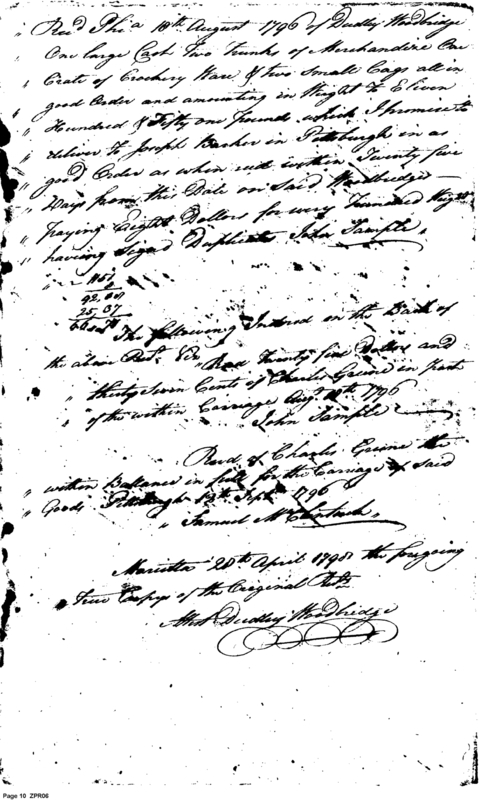 " Recd Phi'a 18th August 1796 of Dudley Woodbridge
One large Cask Two Trunks of Merchandize One
" Crate of Crockery Ware & two small Cags all in
" good Order and amounting in Weight to Eleven
" Hundred & Fifty one Pounds which I promise to
" deliver to Joseph Barker in Pittsburgh in as
" good Order as when recd within Twenty five
" Days from this Date on Said Woodbridge
" paying Eight Dollars for every Hundred Weight
" having Signd Duplicates John Sample "
1151
8
92,08
25,37
66 71
The following Indorsd on the Back of
the above Rect. Viz Recd Twenty five Dollars and
" thirty Seven Cents of Charles Greene in part
" of the within Carriage Augt 1796
John Sample
Recd of Charles Greene the
" within Ballance in full for the Carriage of Said
" Goods Pittsburgh Sept 1796
" Samuel McClintock "
Marietta 28th April 1798 the foregoing
True Copys of the Original
Attest Dudley Woodbridge
Page 10 ZPR06